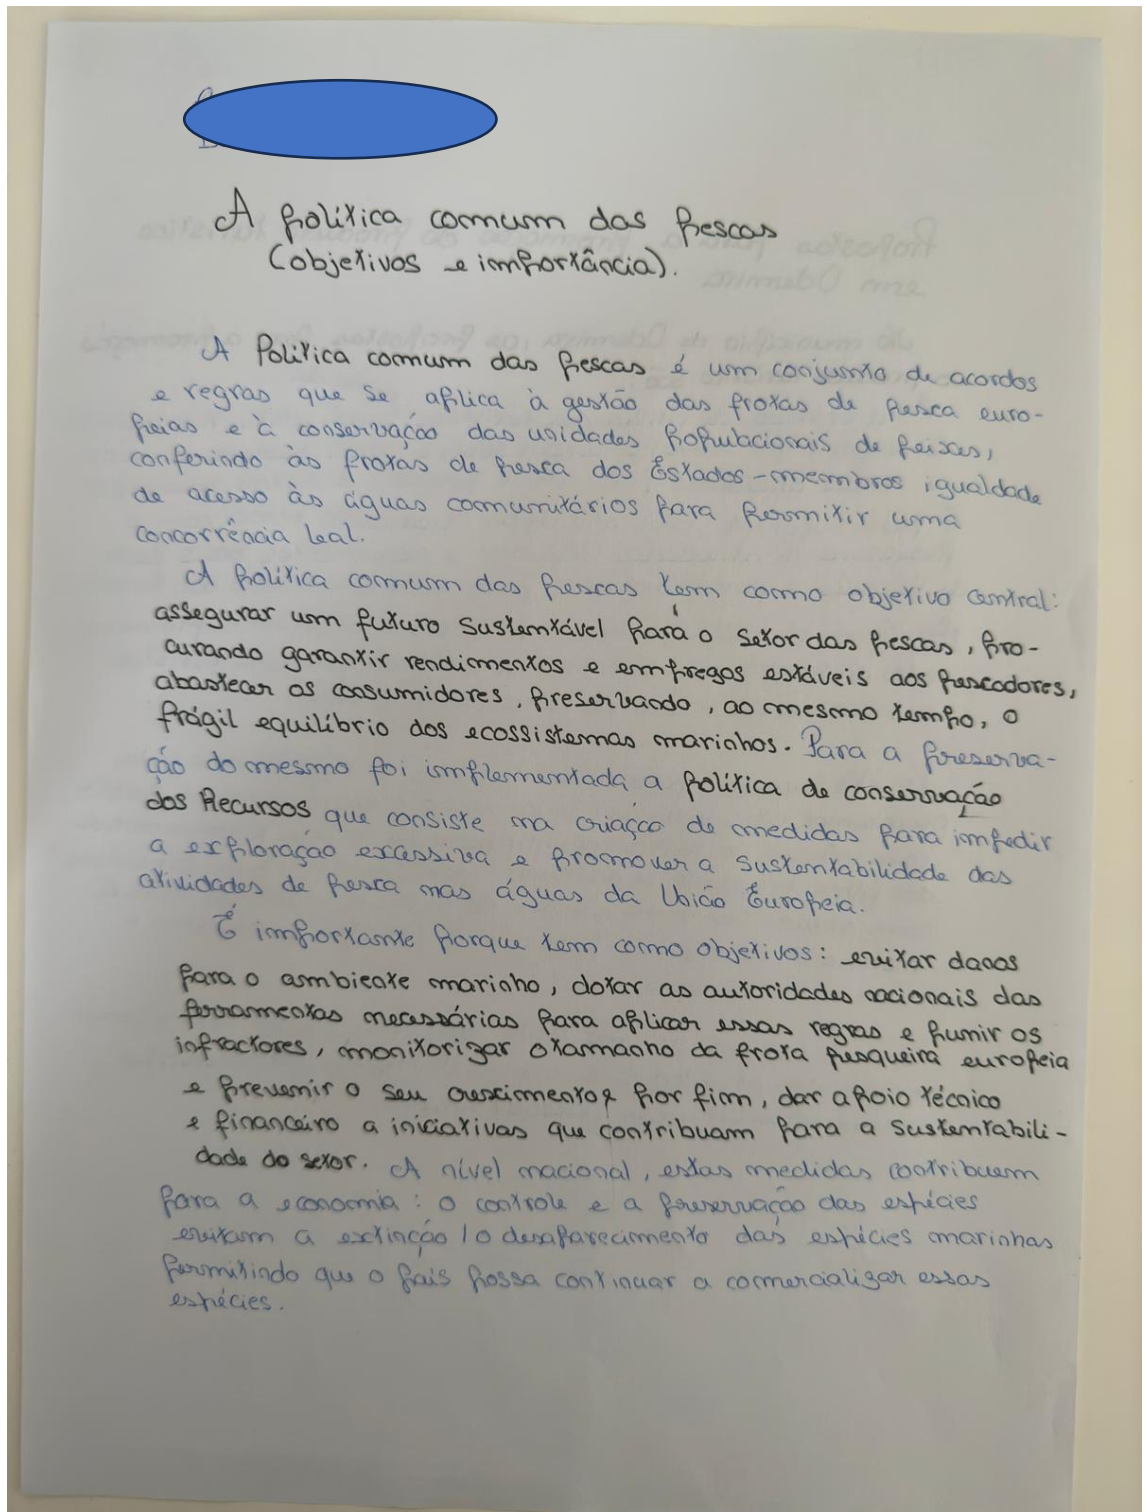 A política comum das pescas
(objetivos e importância).
A Política comum das pescas é um conjunto de acordos
e regras que se aplica à gestão das frotas de pesca euro-
peias e à conservação das unidades populacionais de peixes,
conferindo às frotas de pesca dos Estados-membros igualdade
de acesso às águas comunitários para permitir uma
concorrência leal.
A política comum das pescas tem como objetivo central:
assegurar um futuro sustentável para o setor das pescas, pro-
curando garantir rendimentos e empregos estáveis aos pescadores,
abastecer os consumidores, preservando, ao mesmo tempo, o
frágil equilíbrio dos ecossistemas marinhos. Para a preserva-
ção do mesmo foi implementada a política de conservação
dos Recursos que consiste na criação de medidas para impedir
a exploração excessiva e promover a sustentabilidade das
atividades de pesca nas águas da União Europeia.
É importante porque tem como objetivos: evitar danos
para o ambiente marinho, dotar as autoridades nacionais das
ferramentas necessárias para aplicar essas regras e punir os
infractores, monitorizar o tamanho da frota pesqueira europeia
e prevenir o seu crescimento e por fim, dar apoio técnico
e financeiro a iniciativas que contribuam para a sustentabili-
dade do setor. A nível nacional, estas medidas contribuem
para a economia: o controle e a preservação das espécies
evitam a extinção / o desaparecimento das espécies marinhas
permitindo que o país possa continuar a comercializar essas
espécies.